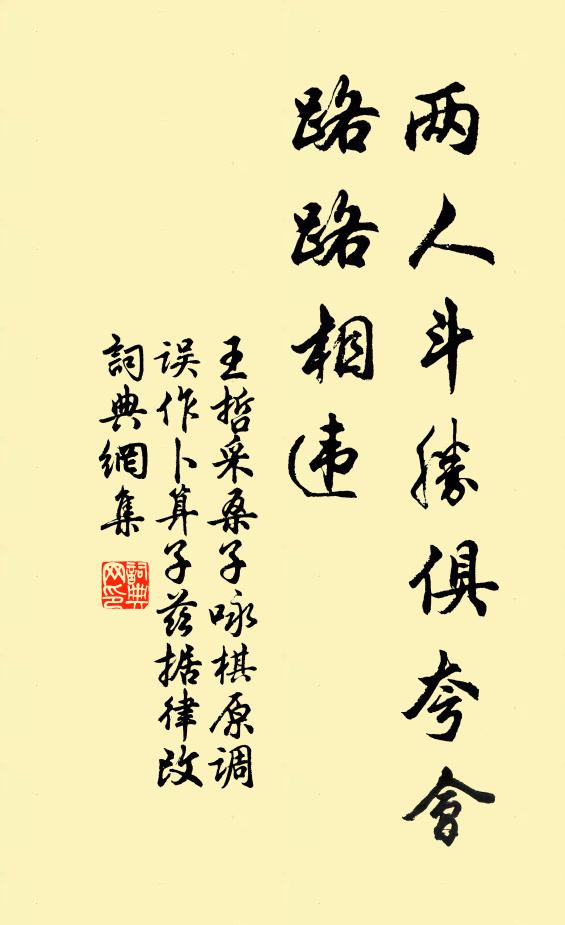 两人斗勝俱夸會
路路相违
王哲采桑子咏棋原调
误作卜算子兹据律改
詞典網集
詞典网印